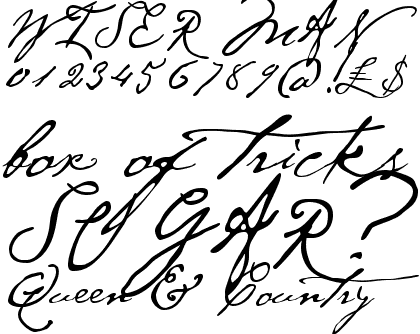 WISER MAN
0123456789@!£$
box of Tricks
SUGAR?
Queen & Country